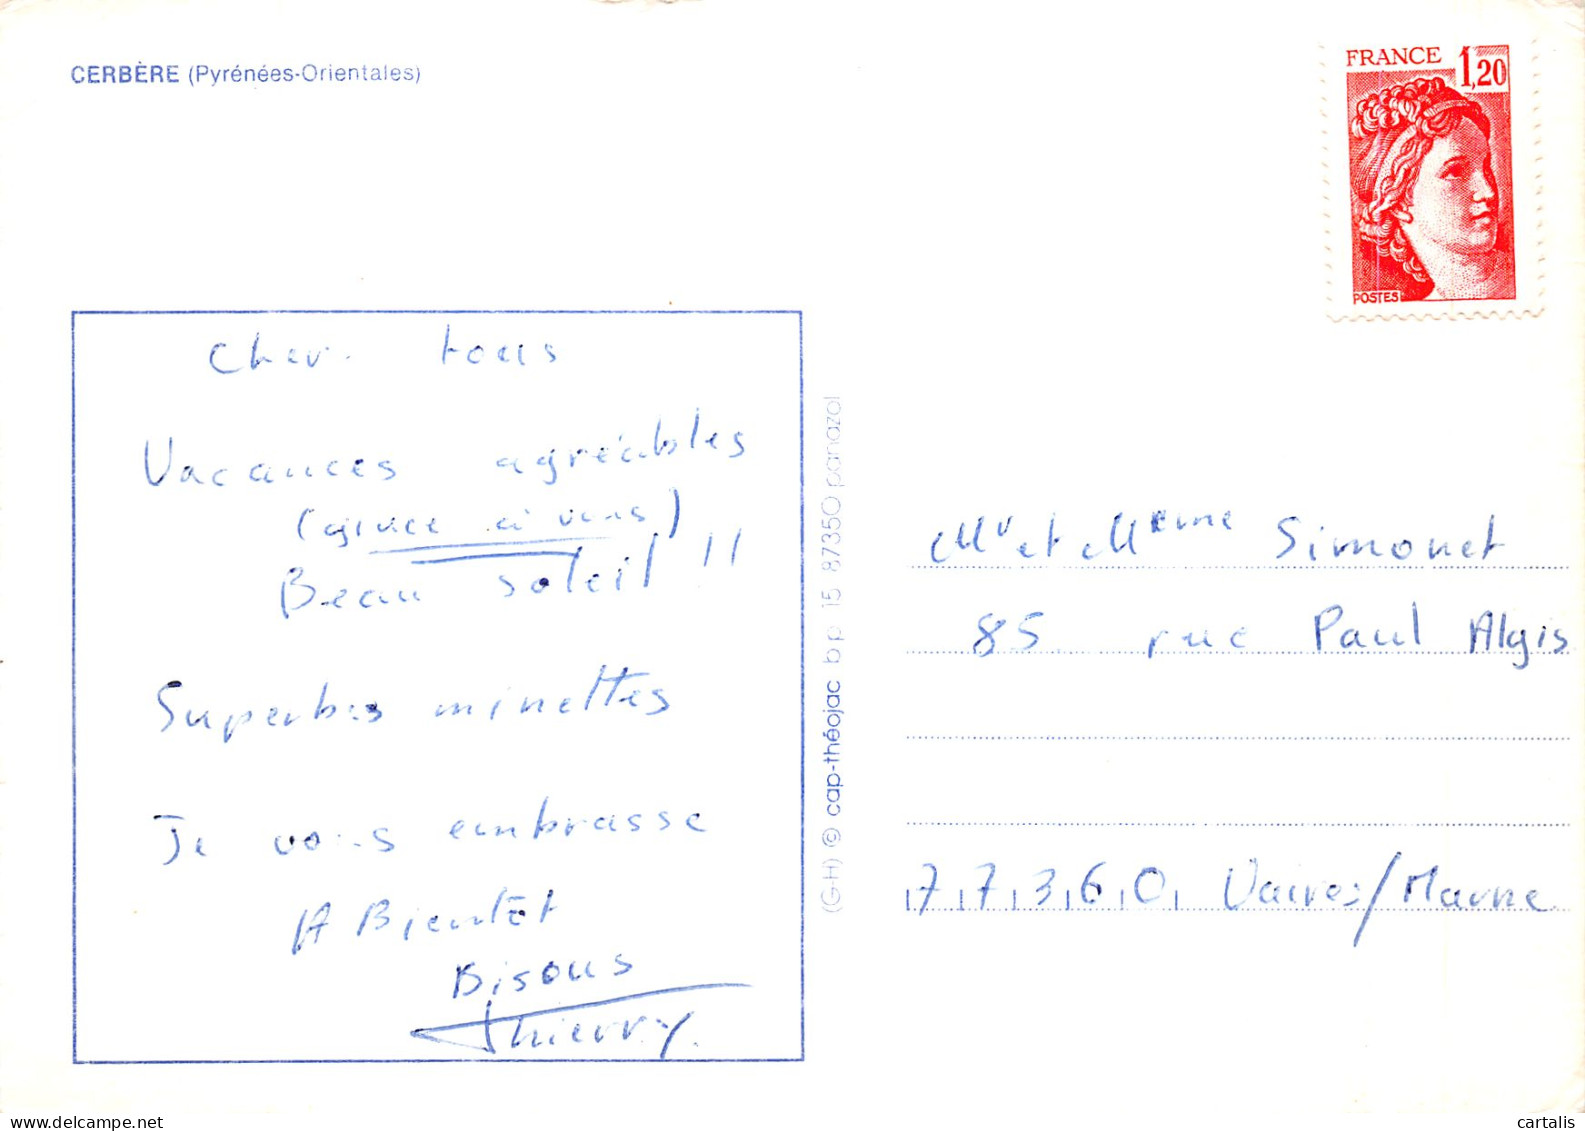 CERBÈRE (Pyrénées-Orientales)
FRANCE 1,20
POSTES
Cher tous
Vacances agréables
(grace à vous)
Beau soleil !!
Superbes minettes
Je vous embrasse
A Bientôt
Bisous
Thierry.
(G-H) © cap-théojac bp 15 87350 panazol
Mr et Meme Simonet
85 rue Paul Algis
77360 Vaires/Marne
cartalis